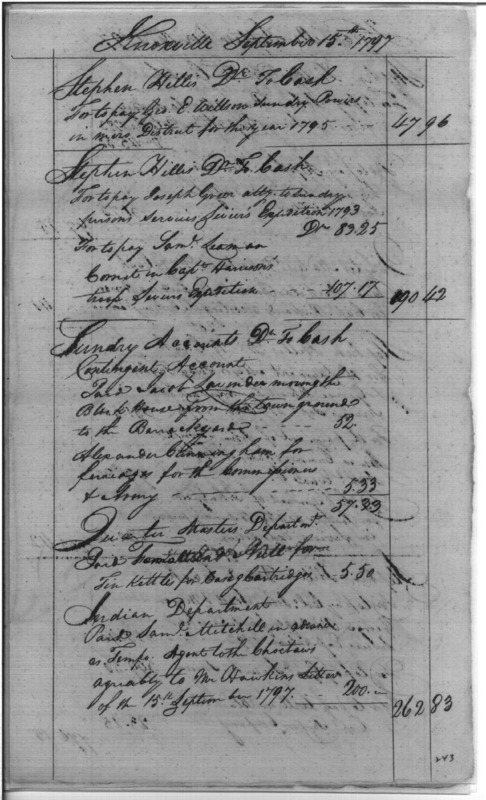 Knoxville September 15th 1797
Stephen Hillis Dr. To Cash
For to pay Geo. E. Willson Sundry
in mero District for the year 1795 47 96
Stephen Hillis Dr. To Cash
For to pay Joseph Greer atty. to Sundry
persons Services Seviers Expedition 1793
Drs 83.25
For to pay Saml. Leaman
Cornet in Capt. Harrisons
troop Seviers Expedition 107.17 190 42
Sundry Accounts Dr. To Cash
Contingent Account
Paid Jacob Lavender moving the
Block House from the town ground
to the Barrack yard 52.
Alexander Cunningham for
ferriages for the Commissioner
& Army 5.33
57.33
Quarter Masters Departmt.
Paid for
Tin Kettle for Carg Cartridges 5.50
Indian Department
Paid Saml. Mitchell in advance
as Tempo. Agent to the Choctaws
agreeably to Mr Hawkins Letter
of the 15th September 1797 200. 262 83
243